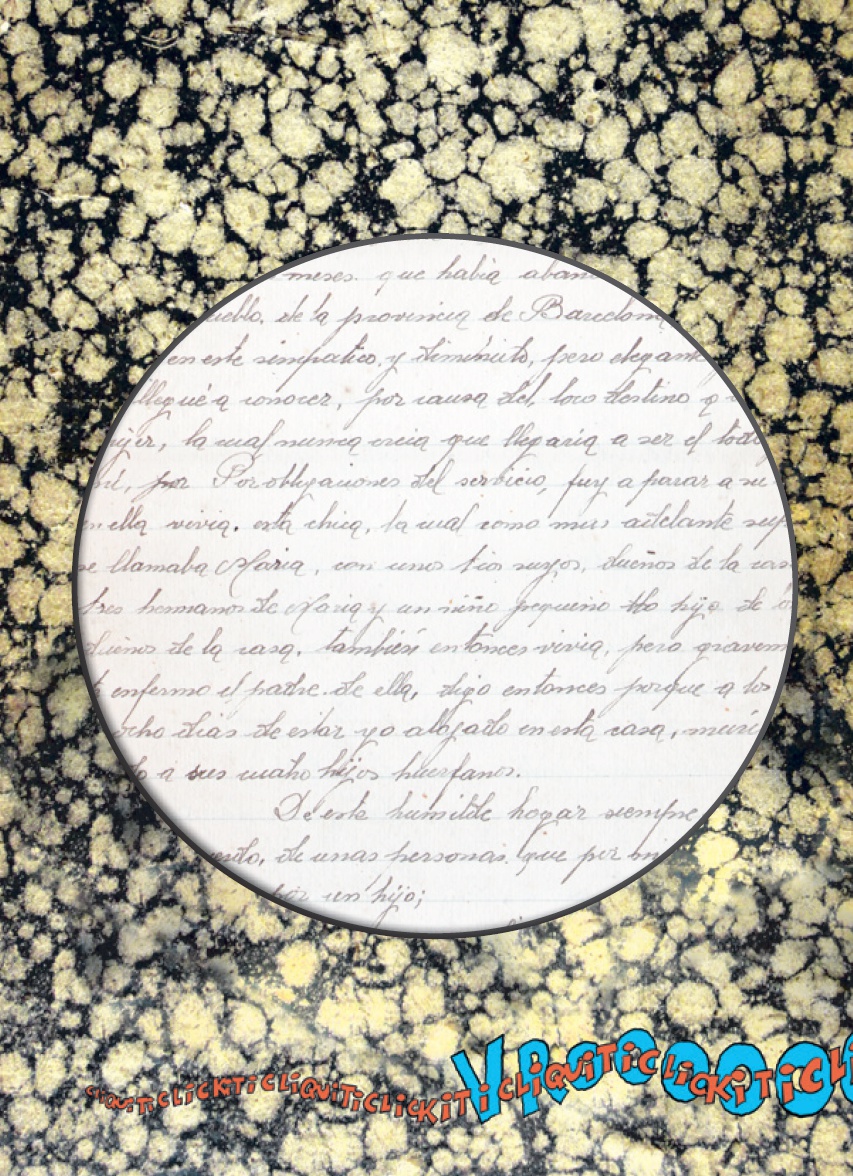 meses. que había aban
ueblo. de la provincia de Barcelona
en este simpatico, y diminuto, pero elegante
llegué a conocer, por causa del, loco destino q
ujer, la cual nunca creia que llegaría a ser el todo
mí, por Por obligaciones del servicio, fuy a parar a su
en ella vivia. esta chica, la cual como mas adelante sup
se llamaba Maria, con unos tios suyos, dueños de la casa
tres hermanos de Maria y un niño pequeño hijo de los
dueños de la casa. también entonces vivia, pero gravem
enfermo el padre. de ella, digo entonces porque a los
ocho dias de estar yo alojado en esta casa, murió
a sus cuatro hijos huerfanos.
De este humilde hogar siempre
de unas personas. que por mi
un hijo;
CLiQUiTiCLiCKiTiCLiQUiTiCLiCKiTiCLiQUiTiCLiCKiTiCLi
VROOOO